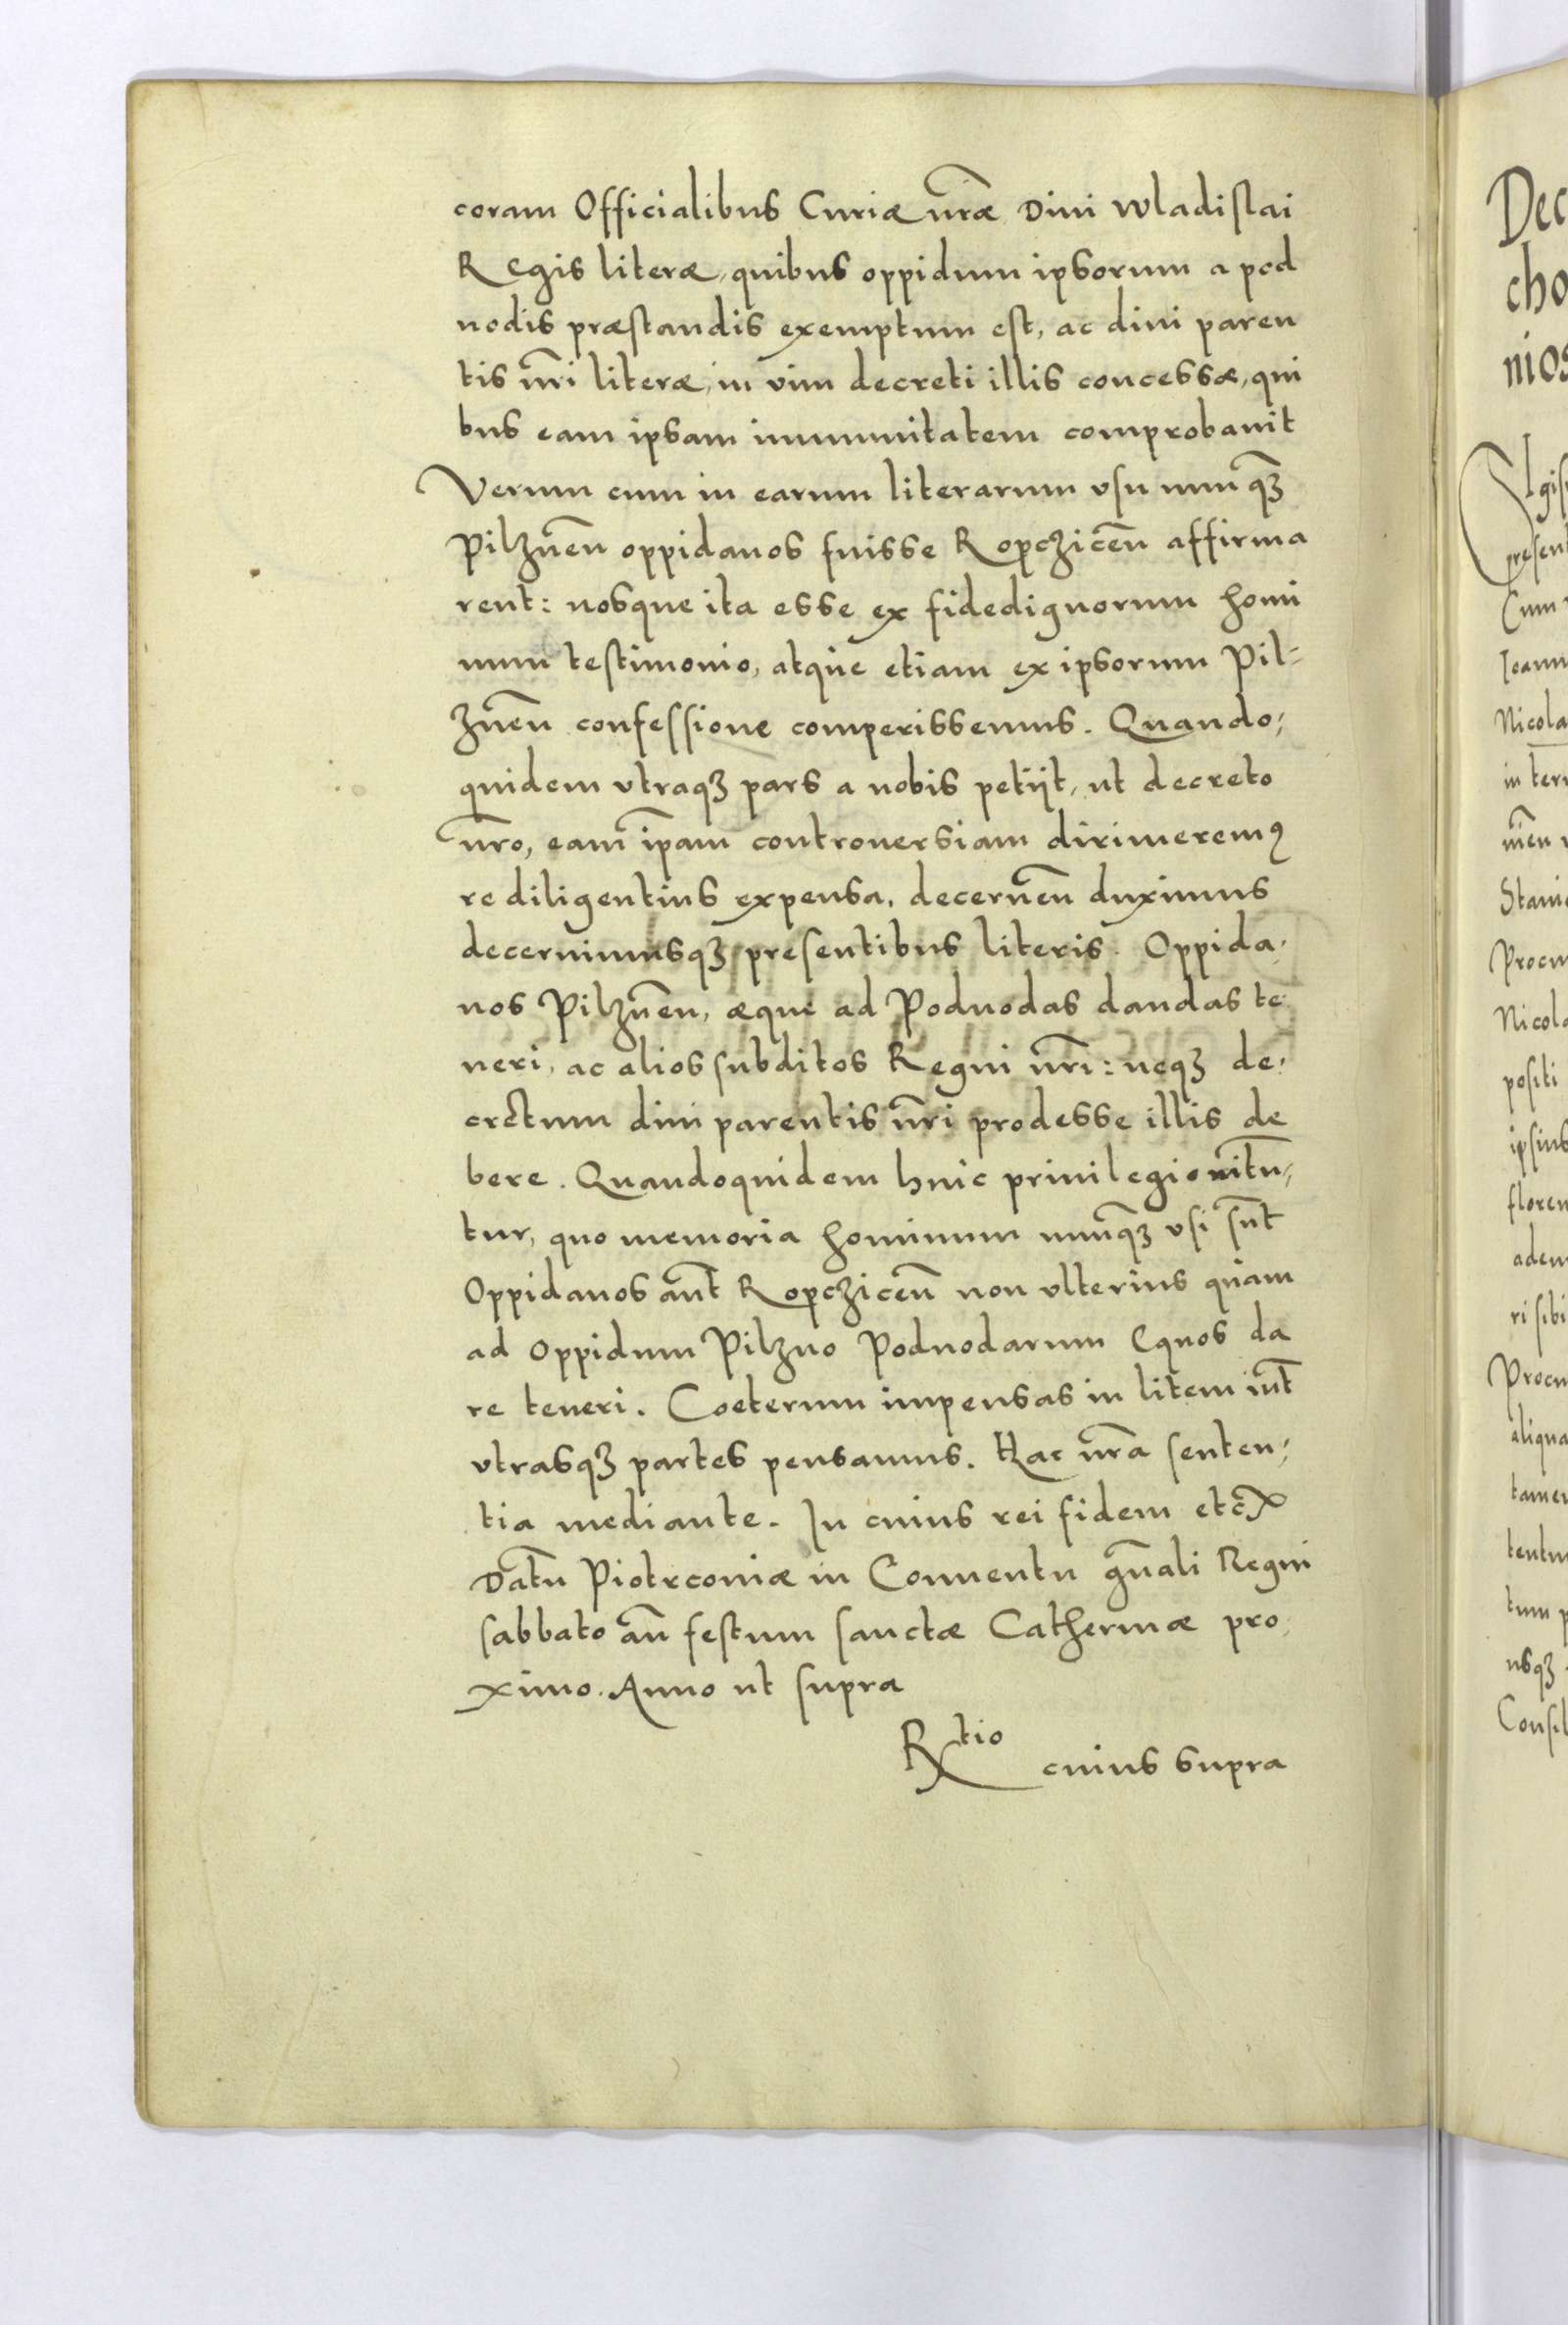 coram Officialibus Curiæ nr̃æ Diui Wladislai
Regis literæ, quibus oppidum ipsorum a pod
uodis præstandis exemptum est, ac diui paren
tis nr̃i literæ, in vim decreti illis concessæ, qui
bus eam ipsam immunitatem comprobauit
Verum cum in earum literarum vsu nunqꝫ
Pilznen̄ oppidanos fuisse Ropczicen̄ affirma
rent: nosque ita esse ex fidedignorum homi
num testimonio, atque etiam ex ipsorum Pil-
znen̄ confessione comperissemus. Quando,
quidem vtraqꝫ pars a nobis petijt, ut decreto
nr̃o, eam ip̄am controuersiam dirimeremꝰ
re diligentius expensa, decernen̄ duximus
decernimusqꝫ presentibus literis. Oppida,
nos Pilznen̄, æque ad Poduodas dandas te
neri, ac alios subditos Regni nr̃i: neqꝫ de,
cretum diui parentis nr̃i prodesse illis de
bere. Quandoquidem huic priuilegio nitũ,
tur, quo memoria hominum nunqꝫ vsi sñt
Oppidanos aũt Ropczicen̄ non vlterius quam
ad Oppidum Pilzno Poduodarum Equos da
re teneri. Coeterum impensas in litem int̃
vtrasqꝫ partes pensamus. Hac nr̃a senten,
tia mediante. In cuius rei fidem etc̃
Datũ Piotrcouiæ in Conuentu gñali Regni
sabbato añ festum sanctæ Catherinæ pro,
ximo. Anno ut supra
Rtio cuius supra
Dec
cho
nios
presen
Cum
Ioann
Nicola
in ter
Procu
Nicola
positi
ipsius
floren
adem
ri sibi
Procu
aliqua
tamen
tentum
tum p
usqꝫ
Consil